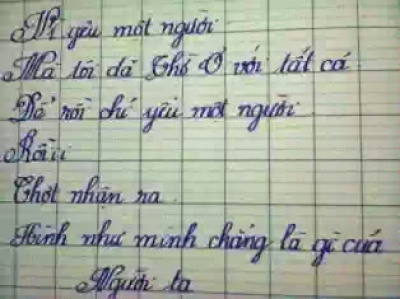 Vì yêu một người
Mà tôi đã thờ ơ với tất cả
Để rồi chỉ yêu một người
Rồi
Chợt nhận ra
Hình như mình chẳng là gì của
Người ta